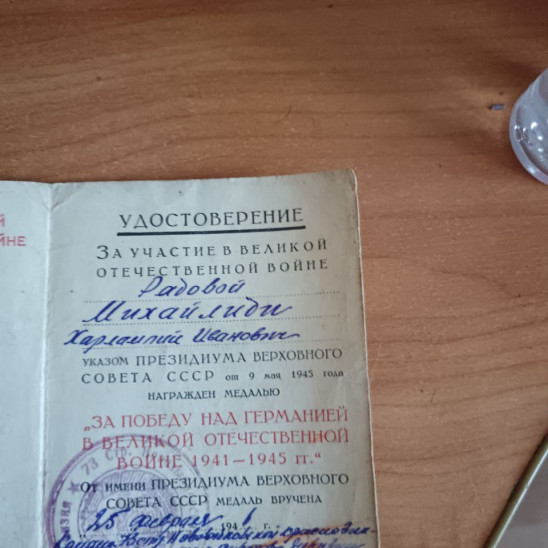 Й
ЙНЕ
УДОСТОВЕРЕНИЕ
ЗА УЧАСТИЕ В ВЕЛИКОЙ
ОТЕЧЕСТВЕННОЙ ВОЙНЕ
Рядовой
Михайлиди
Харлампий Иванович
УКАЗОМ ПРЕЗИДИУМА ВЕРХОВНОГО
СОВЕТА СССР от 9 мая 1945 года
НАГРАЖДЕН МЕДАЛЬЮ
„ЗА ПОБЕДУ НАД ГЕРМАНИЕЙ
В ВЕЛИКОЙ ОТЕЧЕСТВЕННОЙ
ВОЙНЕ 1941—1945 гг.“
ОТ ИМЕНИ ПРЕЗИДИУМА ВЕРХОВНОГО
СОВЕТА СССР МЕДАЛЬ ВРУЧЕНА
25 февраля 194 г.